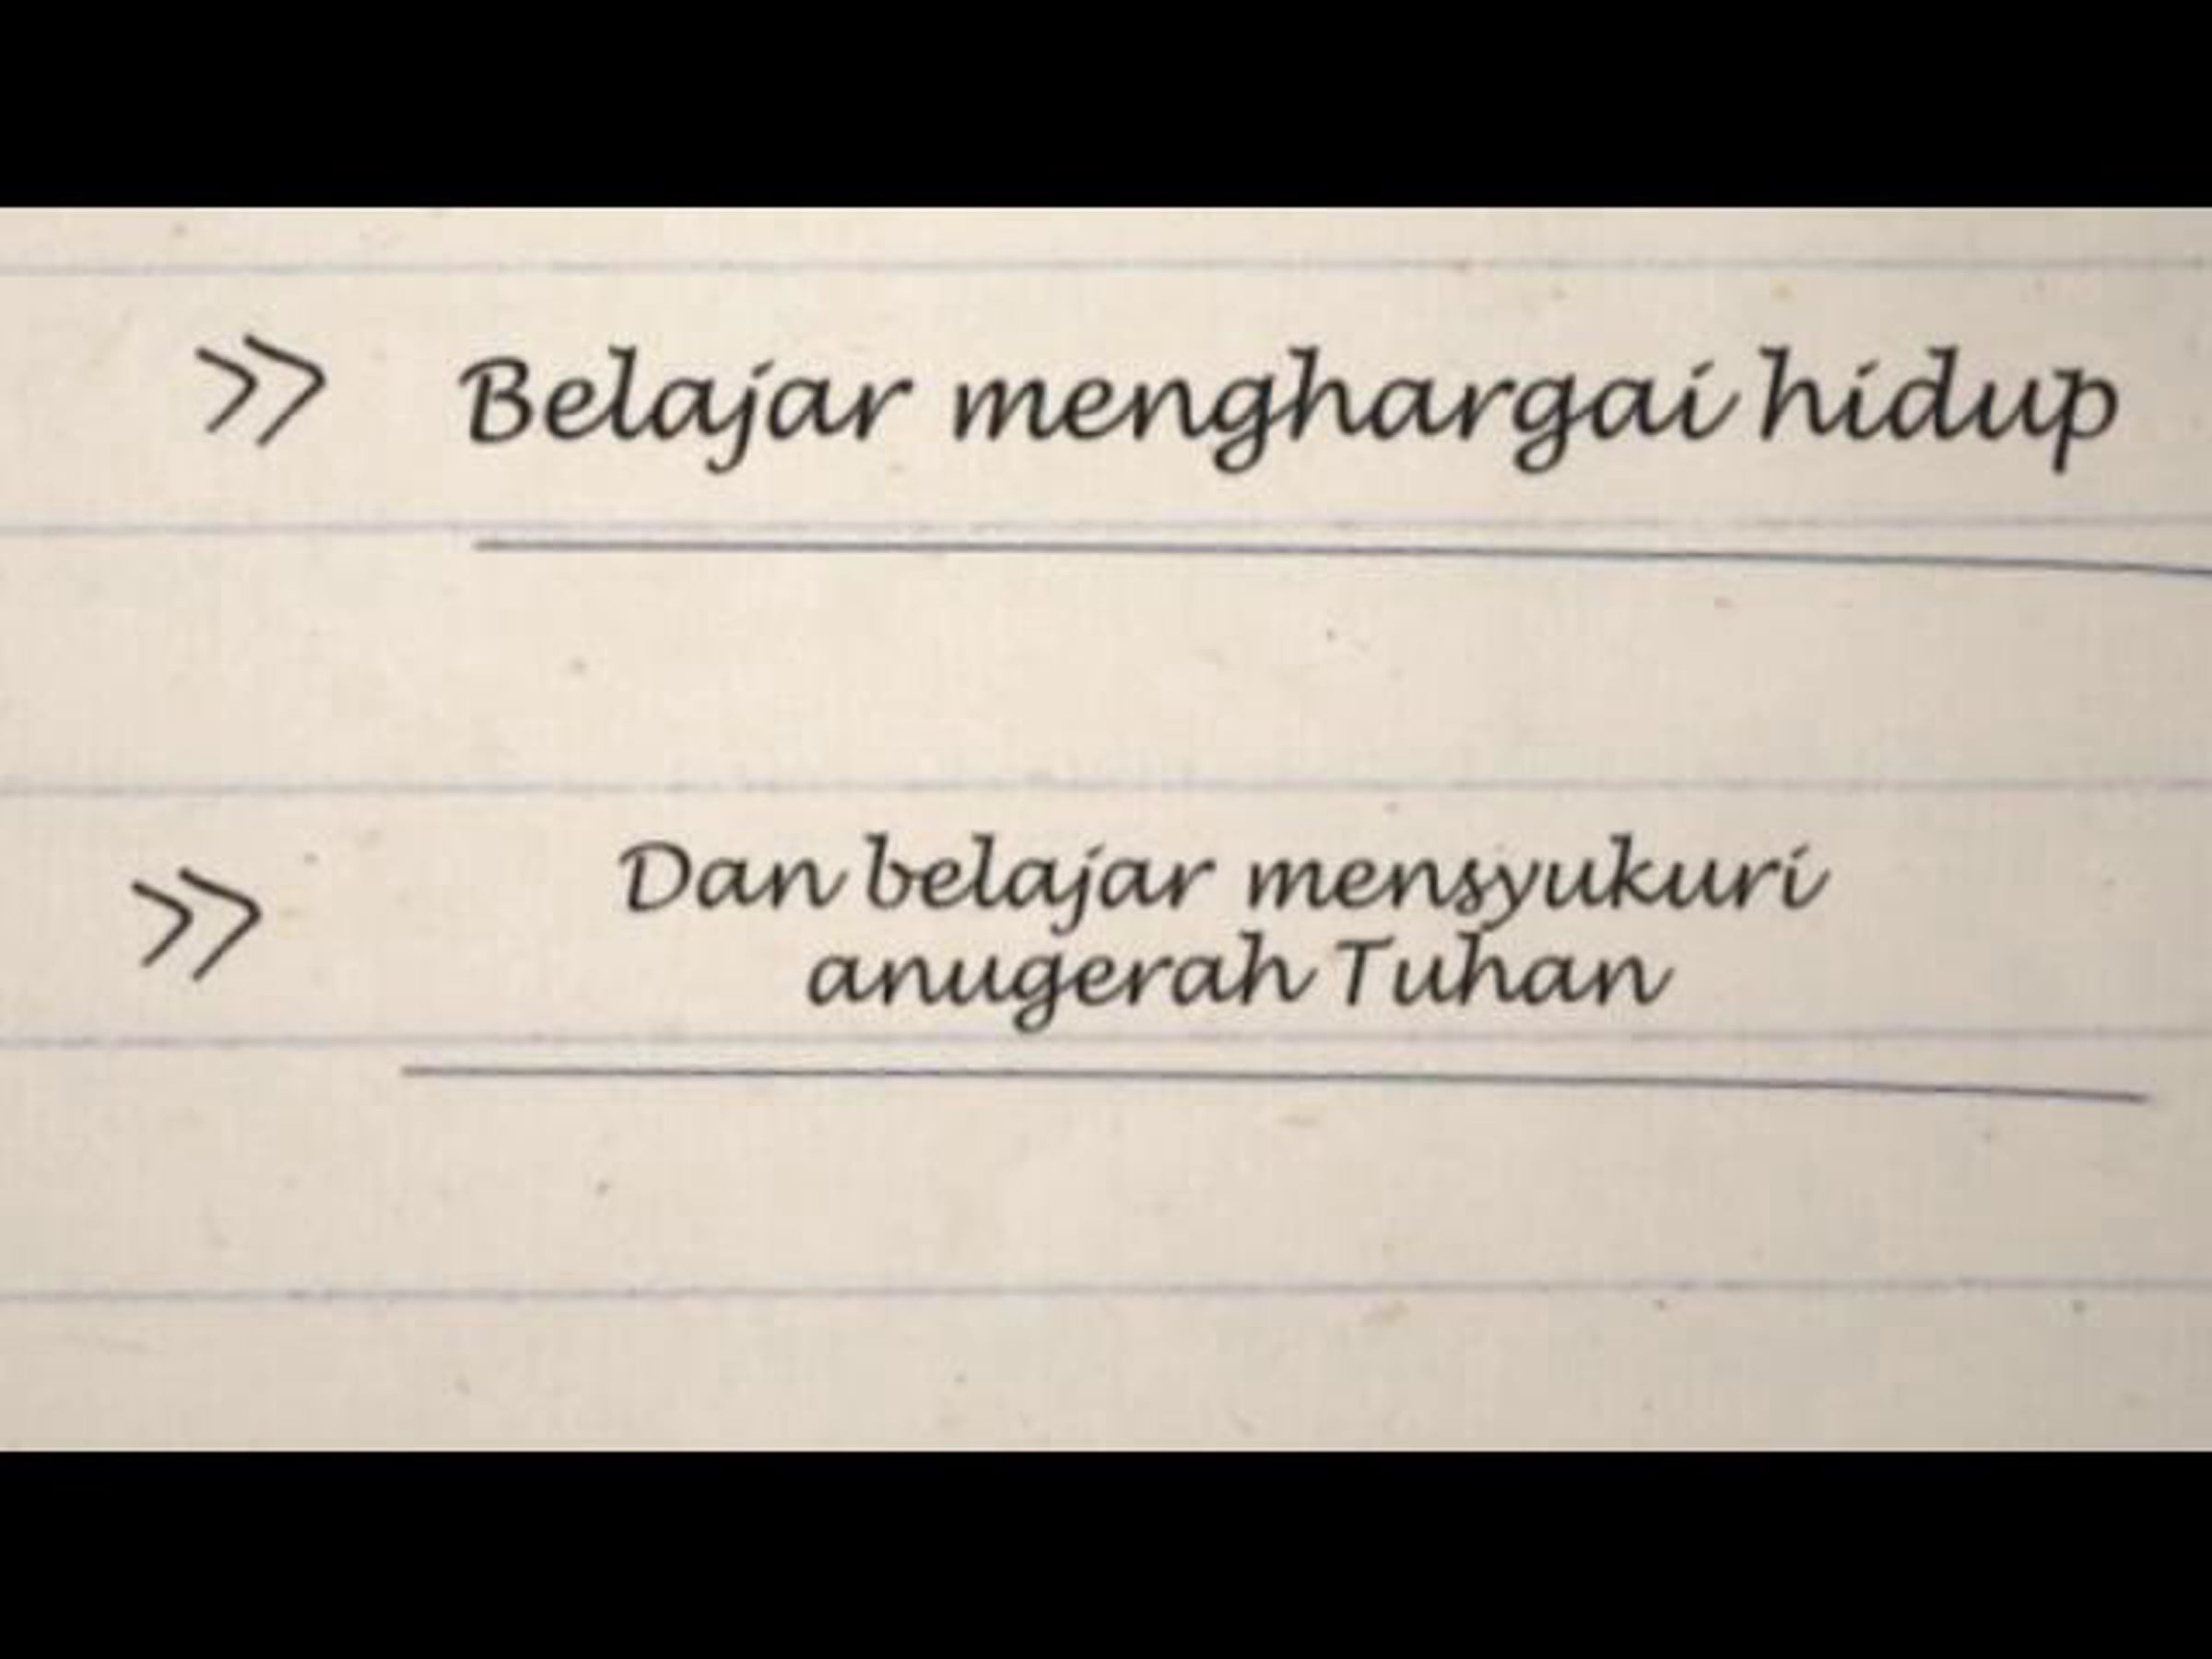 >> Belajar menghargai hidup
>> Dan belajar mensyukuri
anugerah Tuhan